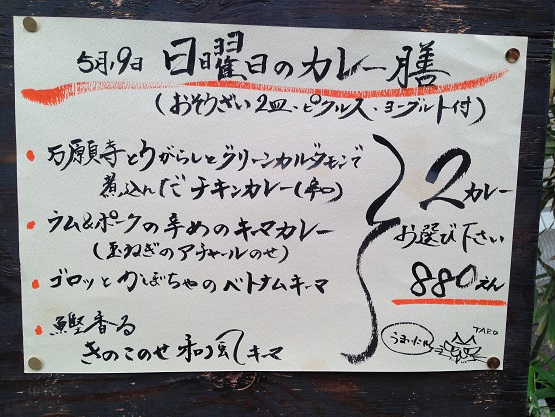 5月19日 日曜日のカレー膳
(おそうざい2皿・ピクルス・ヨーグルト付)
• 石願寺とうがらしとグリーンカルダモンで
煮込んだチキンカレー(辛口)
• ラム&ポークの辛めのキーマカレー
(玉ねぎのアチャールのせ)
• ゴロッとかぼちゃのベトナムキーマ
• 鰹香る
きのこのせ和風キーマ
2カレー
お選び下さい
880えん
うまいにゃ
TARO